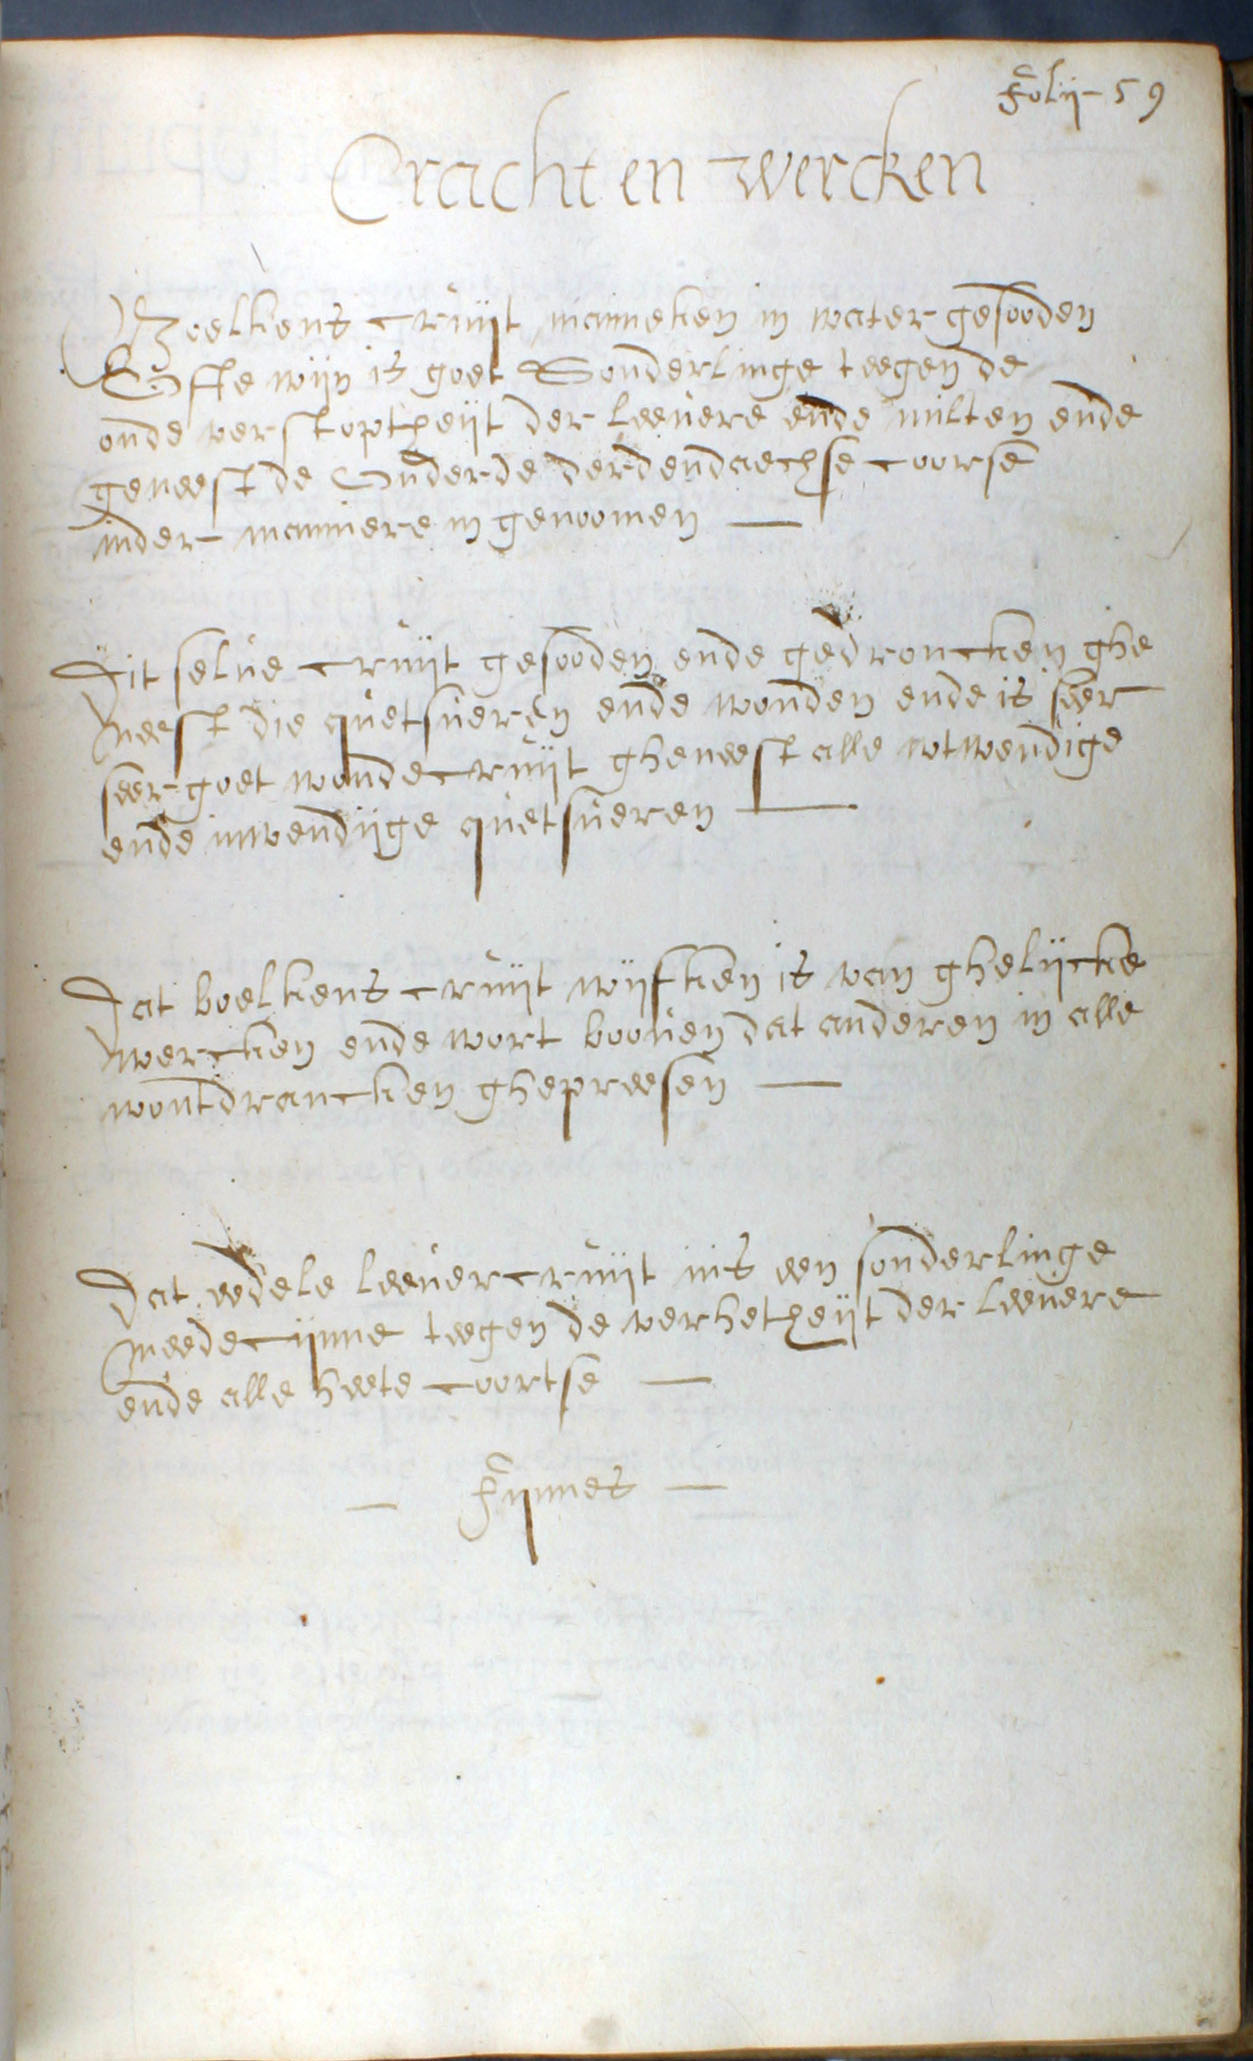 Folij - 59
Cracht en wercken
Boelkens cruijt manneken in water gesooden
Ofte wijn is goet Sonderlinge teegen de
oude verstoptheijt der leevere ende milten ende
geneest de Ouderde derdendaechse coorse
inder maniere in genoomen —
Dit selve cruijt gesooden ende gedroncken ghe
neest die quetsueren ende wonden ende is seer
seer goet wondecruijt gheneest alle wtwendige
ende inwendijge quetsueren —
Dat boelkens cruijt wijfken is van ghelijcke
wercken ende wort booven dat anderen in alle
wontdrancken ghepreesen —
Dat eedele leevercruijt nis een sonderlinge
meedecijnne teegen de verhetheijt der leevere
ende alle heete coortse —
— Fijnnes —